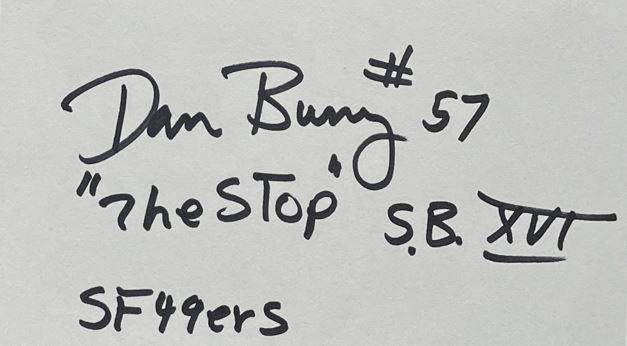 Dan Bunz #57
"The STop" S.B. XVI
SF49ers